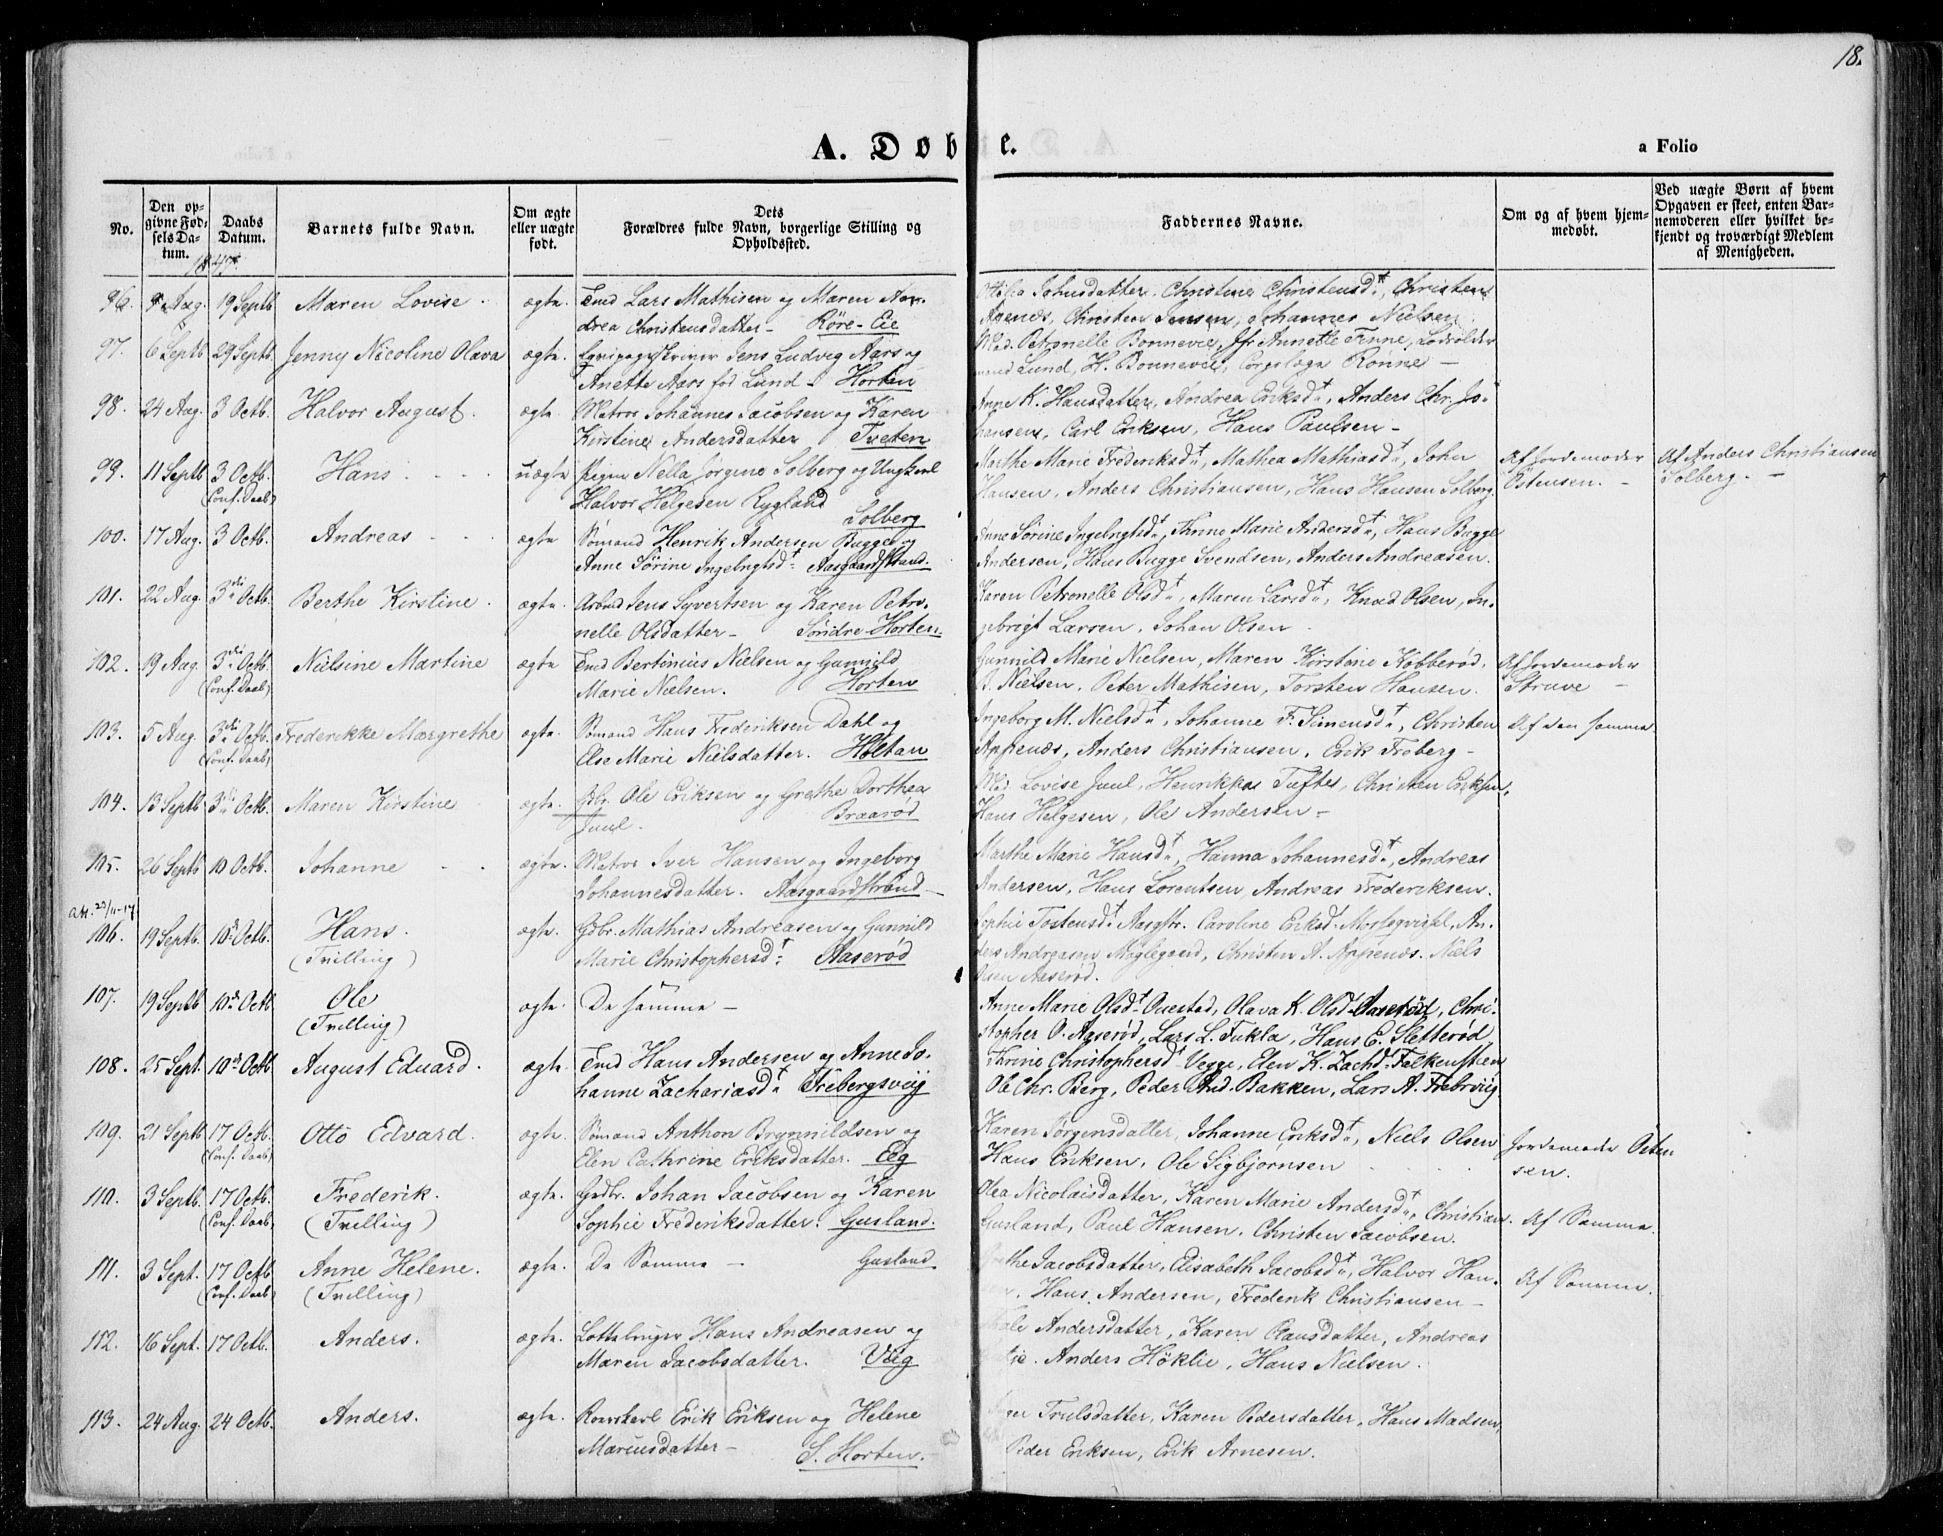 18.
A. Døbte.
a Folio
No.
Den op-
givne Fød-
sels Da-
tum.
Daabs
Datum.
Barnets fulde Navn.
Om ægte
eller uægte
født.
Dets
Forældres fulde Navn, borgerlige Stilling og
Opholdssted.
Faddernes Navne.
Om og af hvem hjem-
medøbt.
Ved uægte Børn af hvem
Opgaven er skeet, enten Bar-
nemoderen eller hvilket be-
kjendt og troværdigt Medlem
af Menigheden.
1847.
96. Aug. 19 Septb Maren Lovise. ægte Lars Mathisen og Maren An- Johnsdatter, Christine Christensd., Christen
drea Christensdatter - Röre-Eie Christen Jensen, Johannes Nielsen.
97. 6 Septb 29 Septb. Jenny Nicoline Olava ægte. Jens Ludvig Aars og Mad. Petronelle Bonnevie, Jfr Annette
Anette Aars fød Lund - Horten Lund, H. Bonnevie, Rönne -
98. 24 Aug. 3 Octb. Halvor August. ægte. Matros Johannes Jacobsen og Karen Anne K. Hansdatter, Andrea Eriksd., Anders Chr. Jo-
Kirstine Andersdatter Tveten hansen, Carl Eriksen, Hans Paulsen -
99. 11 Septb 3 Octb. Hans uægte Pigen Nella Jørgine Solberg og Ungkarl Marthe Marie Frederiksd., Mathea Mathiasd., Johan Af Jordemoder Af Anders Christiansen
(Conf. Daab) Halvor Helgesen Rygland Hansen, Anders Christiansen, Hans Hansen Solberg. Östensen. - Solberg. -
Solberg
100. 17 Aug. 3 Octb. Andreas ægte Sömand Henrik Andersen Bugge og Anne Sörine Ingebrigtsd., Anne Marie Andersd., Hans Bugge
Anne Sörine Ingebrigtsd. Aasgaardstrand. Andersen, Hans Bugge Svendsen, Anders Andreasen.
101. 22 Aug. 3die Octb. Berthe Kirstine. ægte. Arbmd Jens Syvertsen og Karen Petro- Karen Petronelle Olsd., Maren Larsd., Knud Olsen, In-
nelle Olsdatter - Söndre-Horten. gebrigt Larsen, Johan Olsen.
102. 19 Aug. 3die Octb. Nielsine Martine ægte Bertinius Nielsen og Gunnild Gunnild Marie Nielsen, Maren Kirstine Kobberød, Af Jordemoder
(Conf. Daab) Marie Nielsen. Horten B. Nielsen, Peter Mathisen, Torsten Hansen. Struve -
103. 5 Aug. 3die Octb. Frederikke Margrethe ægte. Sömand Hans Frederiksen Dahl og Ingeborg M. Nielsd., Johanne F. Simensd., Christen Af den samme
(Conf. Daab) Else Marie Nielsdatter. Holtan Appenæs, Anders Christiansen, Erik Froberg -
104. 13 Septb 3die Octb. Maren Kirstine ægte. Gbr. Ole Eriksen og Grethe Dorthea Mad. Lovise Juul, Henrikka Tuftes, Christen Eriksen,
Juul. Braarød Hans Helgesen, Ole Andersen -
105. 26 Septb 10 Octb. Johanne ægte. Matros Iver Hansen og Ingeborg Marthe Marie Hansd., Hanna Johannesd., Andreas
Johannesdatter. Aasgaardstrand - Andersen, Hans Lorentsen, Andreas Frederiksen.
Att. 23/11-17
106. 19 Septb. 10de Octb. Hans. ægte. Gdbr. Mathias Andreasen og Gunnild Sophie Tostensd. Aasgstr. Caroline Eriksd. An-
(Tvilling) Marie Christophersd. Aaserød ders Andreasen Moglegaard, Christen A. Appenæs. Niels
Olsen Aaserød.
107. 19 Septb 10de Octb Ole ægte. De samme - Anne Marie Olsd. Ouestad, Olava K. Olsd. Aaserød, Chri-
(Tvilling) stopher O. Aaserød, Lars L. Fukla, Hans E. Sletterød
108. 25 Sept. 10de Octb August Eduard. ægte. Hans Andersen og Anne Jo- Thrine Christophersd. Vegge, Elen K. Zachd. Falkensteen
hanne Zachariasd. Frebergsveig Ole Chr. Berg, Peder And. Bakken, Lars A. Frebrvig.
109. 21 Septb 17 Octb. Otto Edvard. ægte. Sömand Anthon Brynnildsen og Karen Jörgensdatter, Johanne Eriksd., Niels Olsen Jordemoder Östen
(Conf. Daab) Elen Cathrine Eriksdatter. Eeg Hans Eriksen, Ole Sigbjørnsen sen.
110. 3 Septb. 17 Octb. Frederik. ægte. Grdbr. Johan Jacobsen og Karen Olea Nicolaisdatter, Karen Marie Andersd., Christian Af Samme.
(Conf. Daab) (Tvilling) Sophie Frederiksdatter. Gusland. Gusland, Paul Hansen, Christen Jacobsen.
111. 3 Sept. 17 Octb Anne Helene. ægte. De Samme - Gusland. Jacobsdatter, Elisabeth Jacobsd., Halvor Han- Af Samme.
(Conf. Daab) (Tvilling) Hans Andersen, Frederik Christiansen -
112. 16 Sept. 17 Octb. Anders. ægte. Lottebruger Hans Andreasen og Andersdatter, Karen Clausdatter, Andreas
Maren Jacobsdatter. Veig Anders Höklie, Hans Nielsen.
113. 24 Aug. 24 Octb. Anders. ægte. Rorskarl Erik Eriksen og Helene Trulsdatter, Karen Pedersdatter, Hans Madsen,
Mariusdatter - S. Horten. - Peder Eriksen, Erik Arnesen.